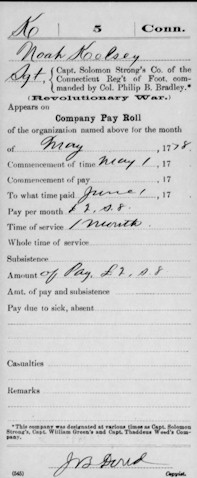 K 5 Conn.
Noah Kolsey
Sgt, Capt. Solomon Strong's Co. of the
Connecticut Reg't of Foot, com-
manded by Col. Philip B. Bradley.*
(Revolutionary War.)
Appears on
Company Pay Roll
of the organization named above for the month
of May, 1778.
Commencement of time May 1, 17
Commencement of pay , 17
To what time paid June 1, 17
Pay per month £2, s. 8
Time of service 1 Month
Whole time of service
Subsistence
Amount of Pay, £2, s. 8
Amt. of pay and subsistence
Pay due to sick, absent
Casualties
Remarks
*This company was designated at various times as Capt. Solomon
Strong's, Capt. William Green's and Capt. Thaddeus Weed's Com-
pany.
J B
(545) Copyist.